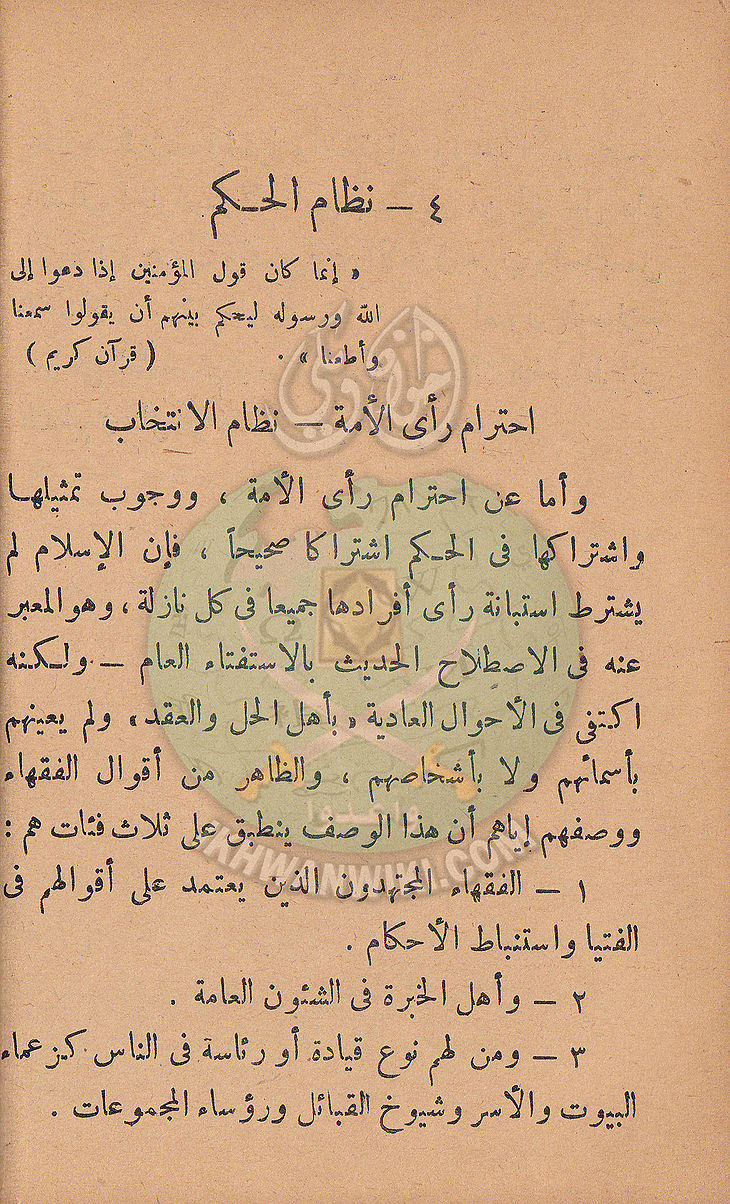 ٤ — نظام الحكم
« إنما كان قول المؤمنين إذا دعوا إلى
الله ورسوله ليحكم بينهم أن يقولوا سمعنا
وأطعنا » . ( قرآن كريم )
احترام رأى الأمة — نظام الانتخاب
وأما عن احترام رأى الأمة ، ووجوب تمثيلها
واشتراكها فى الحكم اشتراكا صحيحاً ، فإن الإسلام لم
يشترط استبانة رأى أفرادها جميعا فى كل نازلة ، وهو المعبر
عنه فى الاصطلاح الحديث بالاستفتاء العام — ولكنه
اكتفى فى الأحوال العادية « بأهل الحل والعقد » ولم يعينهم
بأسمائهم ولا بأشخاصهم ، والظاهر من أقوال الفقهاء
ووصفهم إياهم أن هذا الوصف ينطبق على ثلاث فئات هم :
١ — الفقهاء المجتهدون الذين يعتمد على أقوالهم فى
الفتيا واستنباط الأحكام .
٢ — وأهل الخبرة فى الشئون العامة .
٣ — ومن لهم نوع قيادة أو رئاسة فى الناس كزعماء
البيوت والأسر وشيوخ القبائل ورؤساء المجموعات .
إخوان ويكي
وأعدوا
IKHWANWIKI.COM